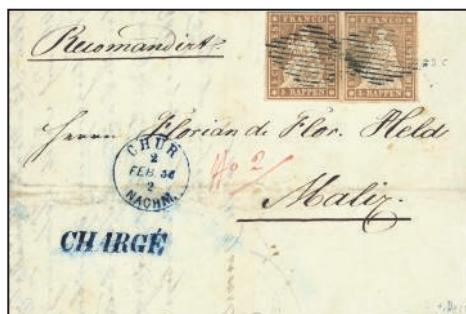 Recomandirt
FRANCO FRANCO
5 RAPPEN 5 RAPPEN
Herrn Florian di Flor. Held
CHUR
2
FEB. 56
2
NACHM.
No 2
Maliz
CHARGÉ